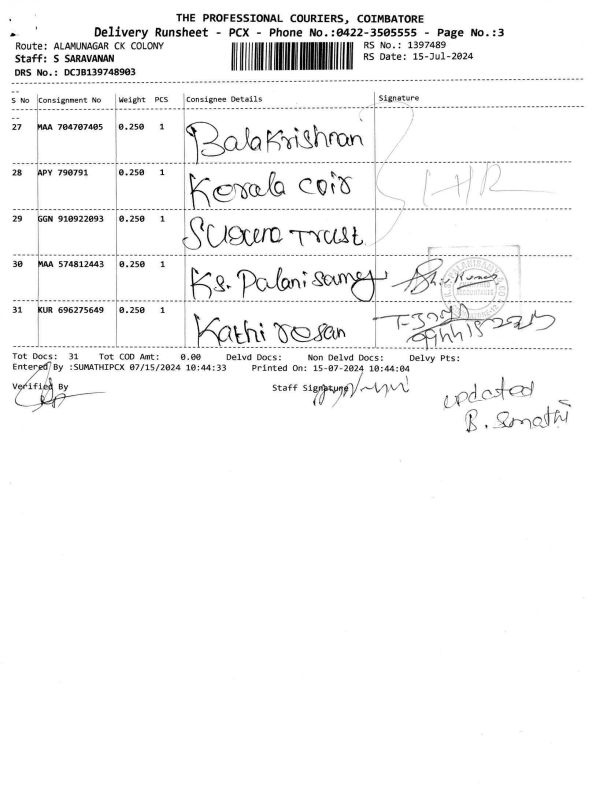 THE PROFESSIONAL COURIERS, COIMBATORE
Delivery Runsheet - PCX - Phone No.:0422-3505555 - Page No.:3
Route: ALAMUNAGAR CK COLONY RS No.: 1397489
Staff: S SARAVANAN RS Date: 15-Jul-2024
DRS No.: DCJB139748903
S No Consignment No Weight PCS Consignee Details Signature
27 MAA 704707405 0.250 1 Balakrishnan
28 APY 790791 0.250 1 Kerala coir
29 GGN 910922093 0.250 1 Trust
30 MAA 574812443 0.250 1 Ks. Palanisamy
31 KUR 696275649 0.250 1 Kathirosan
Tot Docs: 31 Tot COD Amt: 0.00 Delvd Docs: Non Delvd Docs: Delvy Pts:
Entered By :SUMATHIPCX 07/15/2024 10:44:33 Printed On: 15-07-2024 10:44:04
Verified By Staff Signature
updated
B. Smathi